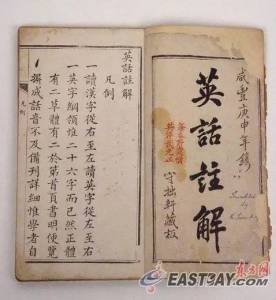 咸豐庚申年鎸
英話註解
守拙軒藏板
英話註解
凡例
一讀漢字從右至左讀英字從左至右
一英字綱領惟二十六字而已然正體
有二草體有二於第首頁書明便覽
成話音不及備列詳細惟學者自
凡例
东方网
EASTDAY.com